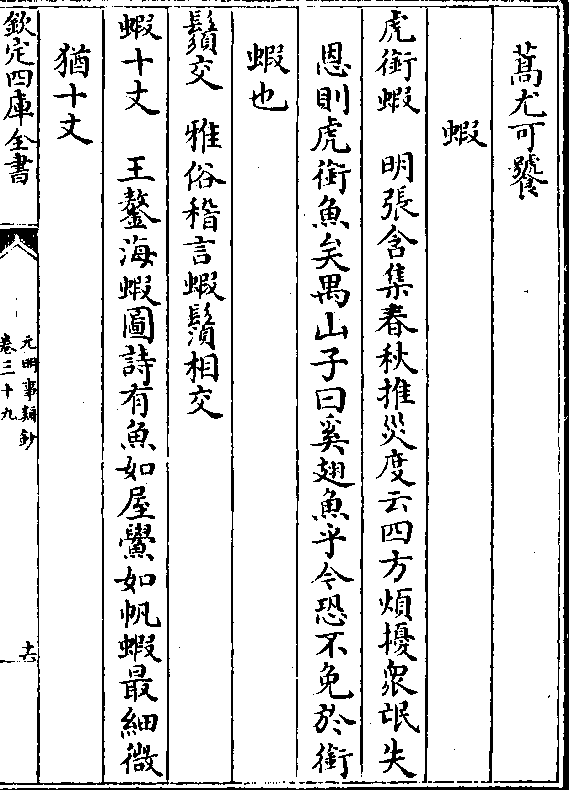 蒿尤可饕
蝦
虎銜蝦　明張含集春秋推災度云四方煩擾衆氓失
恩則虎銜魚矣禺山子曰奚翅魚乎今恐不免於銜
蝦也
鬚交　雅俗稽言蝦鬚相交
蝦十丈　王鏊海蝦圖詩有魚如屋鱟如帆蝦最細微
猶十丈
欽定四庫全書
元明事類鈔
卷三十九
十六